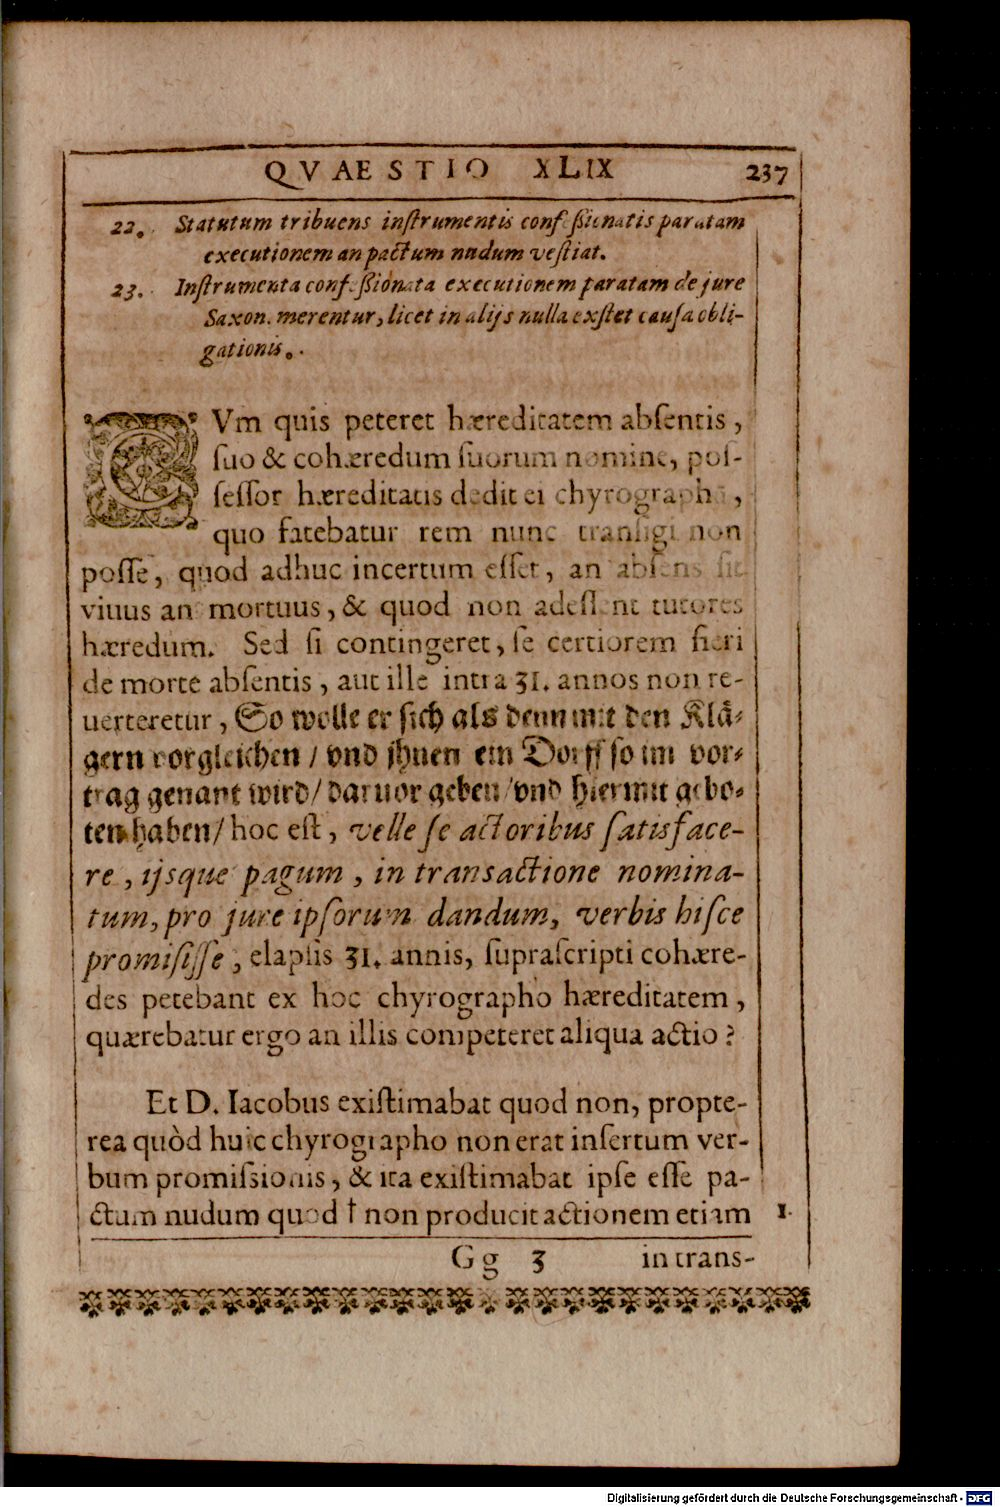 QVAESTIO XLIX 237
22. Statutum tribuens inſtrumentis confeſsionatis paratam
executionem an pactum nudum veſtiat.
23. Inſtrumenta confeſsionata executionem paratam de jure
Saxon. merentur, licet in alijs nulla exſtet cauſa obli-
gationis.
CVm quis peteret hæreditatem abſentis,
ſuo & cohæredum ſuorum nomine, poſ-
ſeſſor hæreditatis dedit ei chyrographū,
quo fatebatur rem nunc tranſigi non
poſſe, quod adhuc incertum eſſet, an abſens ſit
viuus an mortuus, & quod non adeſſent tutores
hæredum. Sed ſi contingeret, ſe certiorem fieri
de morte abſentis, aut ille intra 31. annos non re-
uerteretur, So wolle er ſich als denn mit den Klä-
gern vorgleichen / vnd jhnen ein Dorff ſo im vor-
trag genant wird / daruor geben / vnd hiermit gebo-
ten haben / hoc eſt, velle ſe actoribus ſatisface-
re, ijsque pagum, in transactione nomina-
tum, pro jure ipſorum dandum, verbis hiſce
promiſiſſe, elapſis 31. annis, ſupraſcripti cohære-
des petebant ex hoc chyrographo hæreditatem,
quærebatur ergo an illis competeret aliqua actio?
Et D. Iacobus exiſtimabat quod non, propte-
rea quòd huic chyrographo non erat inſertum ver-
bum promiſsionis, & ita exiſtimabat ipſe eſſe pa-
ctum nudum quod † non producit actionem etiam 1.
Gg 3 in trans-
Digitalisierung gefördert durch die Deutsche Forschungsgemeinschaft - DFG